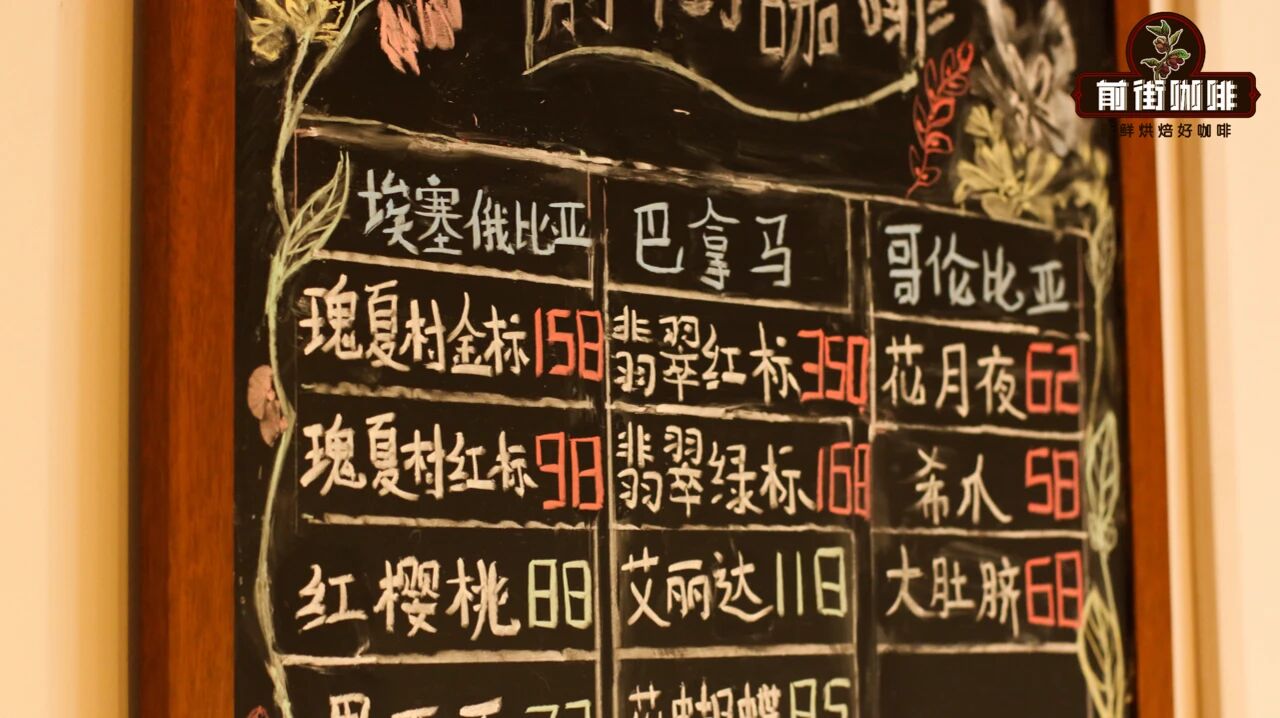 前街咖啡
前街咖啡
鲜烘焙好咖啡
埃塞俄比亚 巴拿马 哥伦比亚
瑰夏村金标158 翡翠红标350 花月夜62
瑰夏村红标98 翡翠绿标168 希爪58
红樱桃88 艾丽达118 大肚脐68
花蝴蝶85